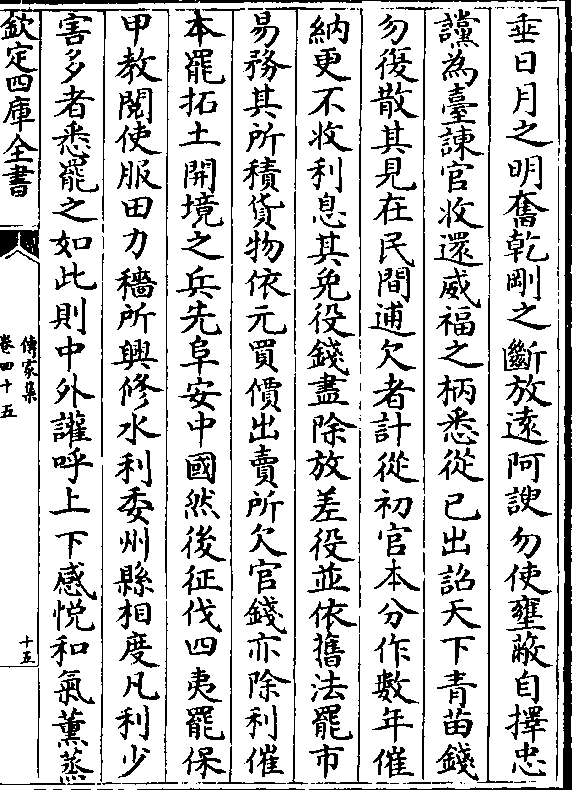 垂日月之明奮乾剛之斷放遠阿諛勿使壅蔽自擇忠
讜為臺諫官收還威福之柄悉從已出詔天下青苗錢
勿復散其見在民間逋欠者計從初官本分作數年催
納更不收利息其免役錢盡除放差役並依舊法罷市
易務其所積貨物依元買價出賣所欠官錢亦除利催
本罷拓土開境之兵先阜安中國然後征伐四夷罷保
甲教閱使服田力穡所興修水利委州縣相度凡利少
害多者悉罷之如此則中外讙呼上下感悅和氣薰蒸
欽定四庫全書
傳家集
卷四十五
十五